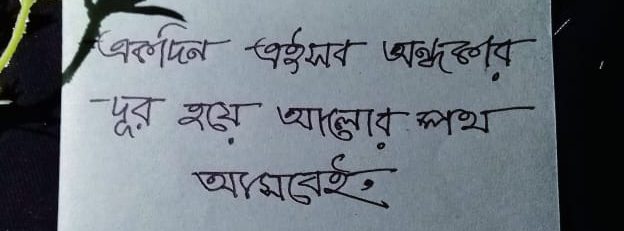 একদিন এইসব অন্ধকার
দূর হয়ে আলোর পথ
আসবেই.